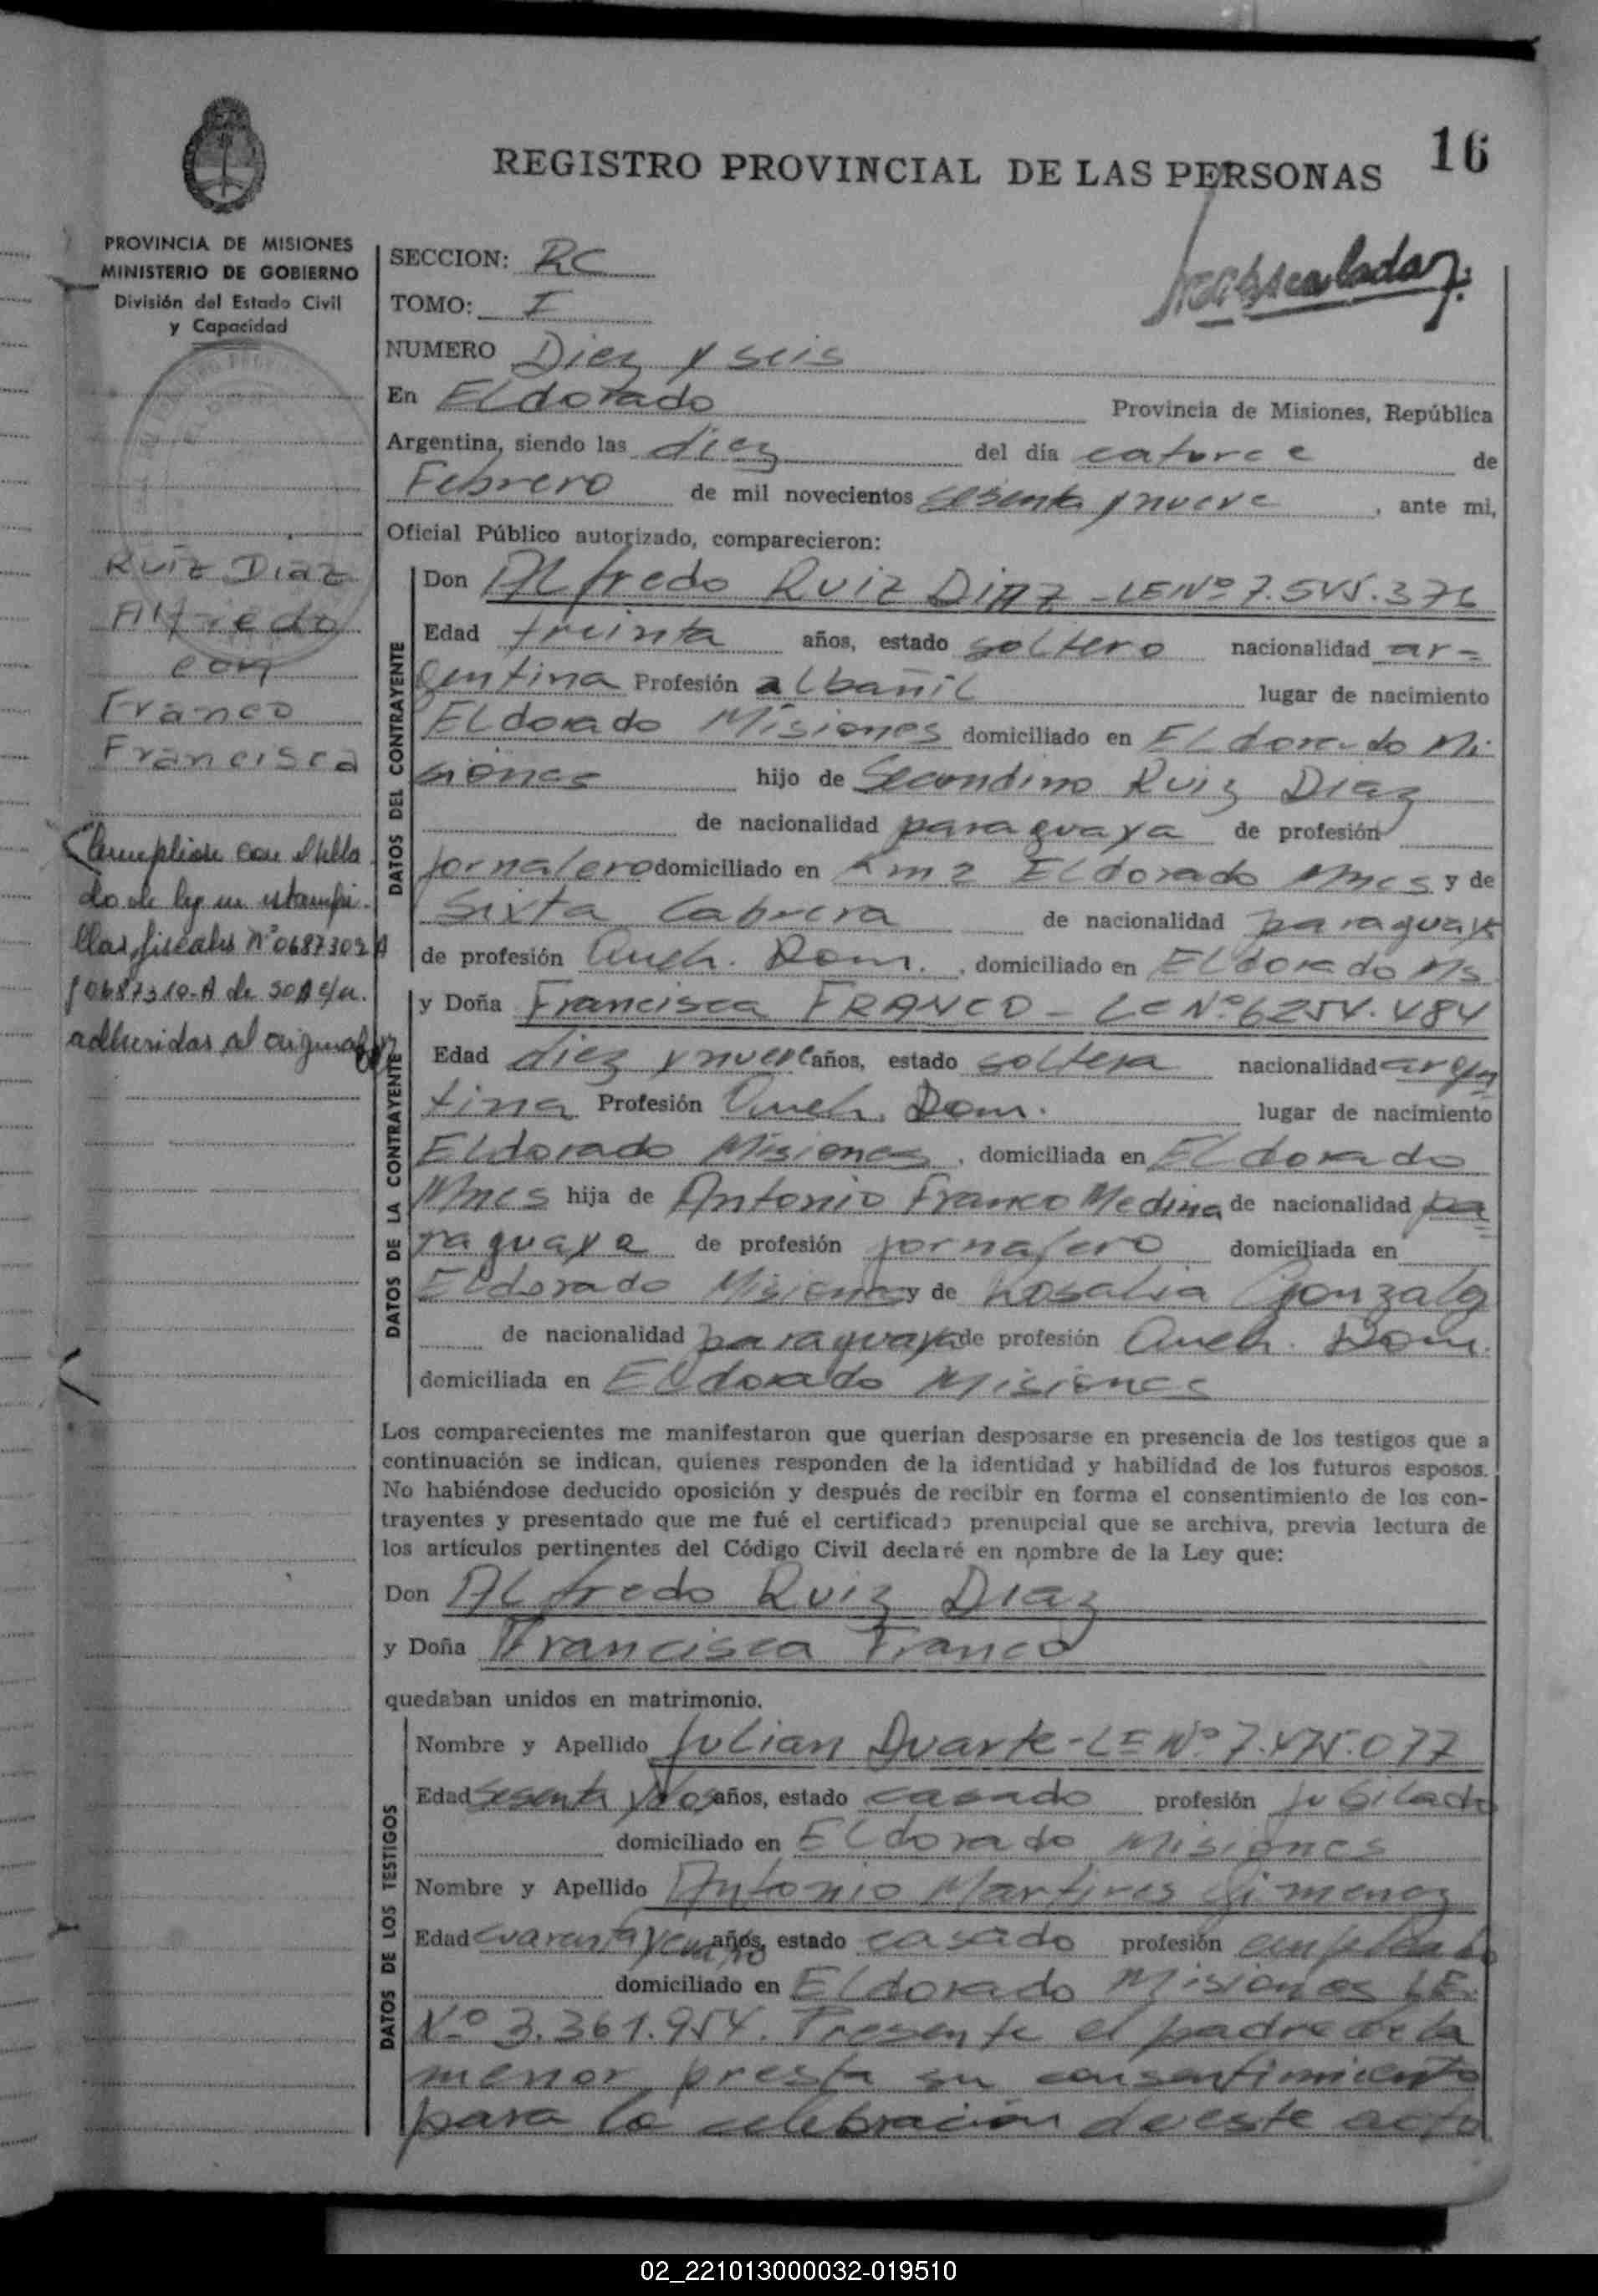 16
REGISTRO PROVINCIAL DE LAS PERSONAS
PROVINCIA DE MISIONES
MINISTERIO DE GOBIERNO
División del Estado Civil
y Capacidad
Ruiz Diaz
Alfredo
con
Franco
Francisca
Cumpliose con el sella
do de ley en estampi-
llas fiscales Nº 0687309 A
y 0687310-A de 50 $ c/u.
adheridas al original
SECCION: RC
TOMO: I
NUMERO Diez y seis
En Eldorado Provincia de Misiones, República
Argentina, siendo las diez del día catorce de
Febrero de mil novecientos sesenta y nueve, ante mi,
Oficial Público autorizado, comparecieron:
DATOS DEL CONTRAYENTE
Don Alfredo Ruiz Diaz - LE Nº 7.545.376
Edad treinta años, estado soltero nacionalidad ar=
gentina Profesión albañil lugar de nacimiento
Eldorado Misiones domiciliado en Eldorado Mi-
siones hijo de Secundino Ruiz Diaz
de nacionalidad paraguaya de profesión
jornalero domiciliado en Km 2 Eldorado Mnes y de
Sixta Cabrera de nacionalidad paraguaya
de profesión Queh. Dom., domiciliado en Eldorado Ms
DATOS DE LA CONTRAYENTE
y Doña Francisca FRANCO - LC Nº 6254.484
Edad diez y nueve años, estado soltera nacionalidad argen
tina Profesión Queh. Dom. lugar de nacimiento
Eldorado Misiones, domiciliada en Eldorado
Mnes hija de Antonio Franco Medina de nacionalidad pa
raguaya de profesión jornalero domiciliada en
Eldorado Misiones y de Rosalia Gonzalez
de nacionalidad paraguaya de profesión Queh. Dom.
domiciliada en Eldorado Misiones
Los comparecientes me manifestaron que querian desposarse en presencia de los testigos que a
continuación se indican, quienes responden de la identidad y habilidad de los futuros esposos.
No habiéndose deducido oposición y después de recibir en forma el consentimiento de los con-
trayentes y presentado que me fué el certificado prenupcial que se archiva, previa lectura de
los artículos pertinentes del Código Civil declaré en nombre de la Ley que:
Don Alfredo Ruiz Diaz
y Doña Francisca Franco
quedaban unidos en matrimonio.
DATOS DE LOS TESTIGOS
Nombre y Apellido Julian Duarte - LE Nº 7.475.077
Edad sesenta y dos años, estado casado profesión jubilado
domiciliado en Eldorado Misiones
Nombre y Apellido Antonio Martires Gimenez
Edad cuarenta y años, estado casado profesión empleado
domiciliado en Eldorado Misiones LE.
Nº 3.361.954. Presente el padre de la
menor presta su consentimiento
para la celebracion de este acto
02_221013000032-019510